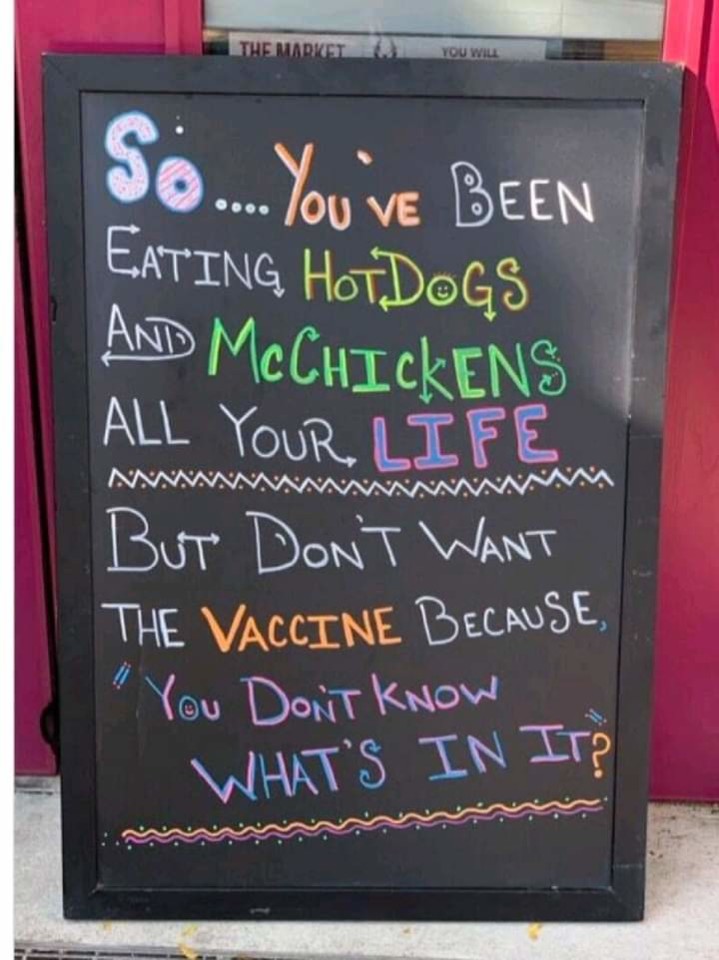 THE MARKET
YOU WILL
So.... You've Been
Eating HotDogs
And McChickens
All Your Life
But Don't Want
The Vaccine Because,
"You Don't Know
What's In It?"